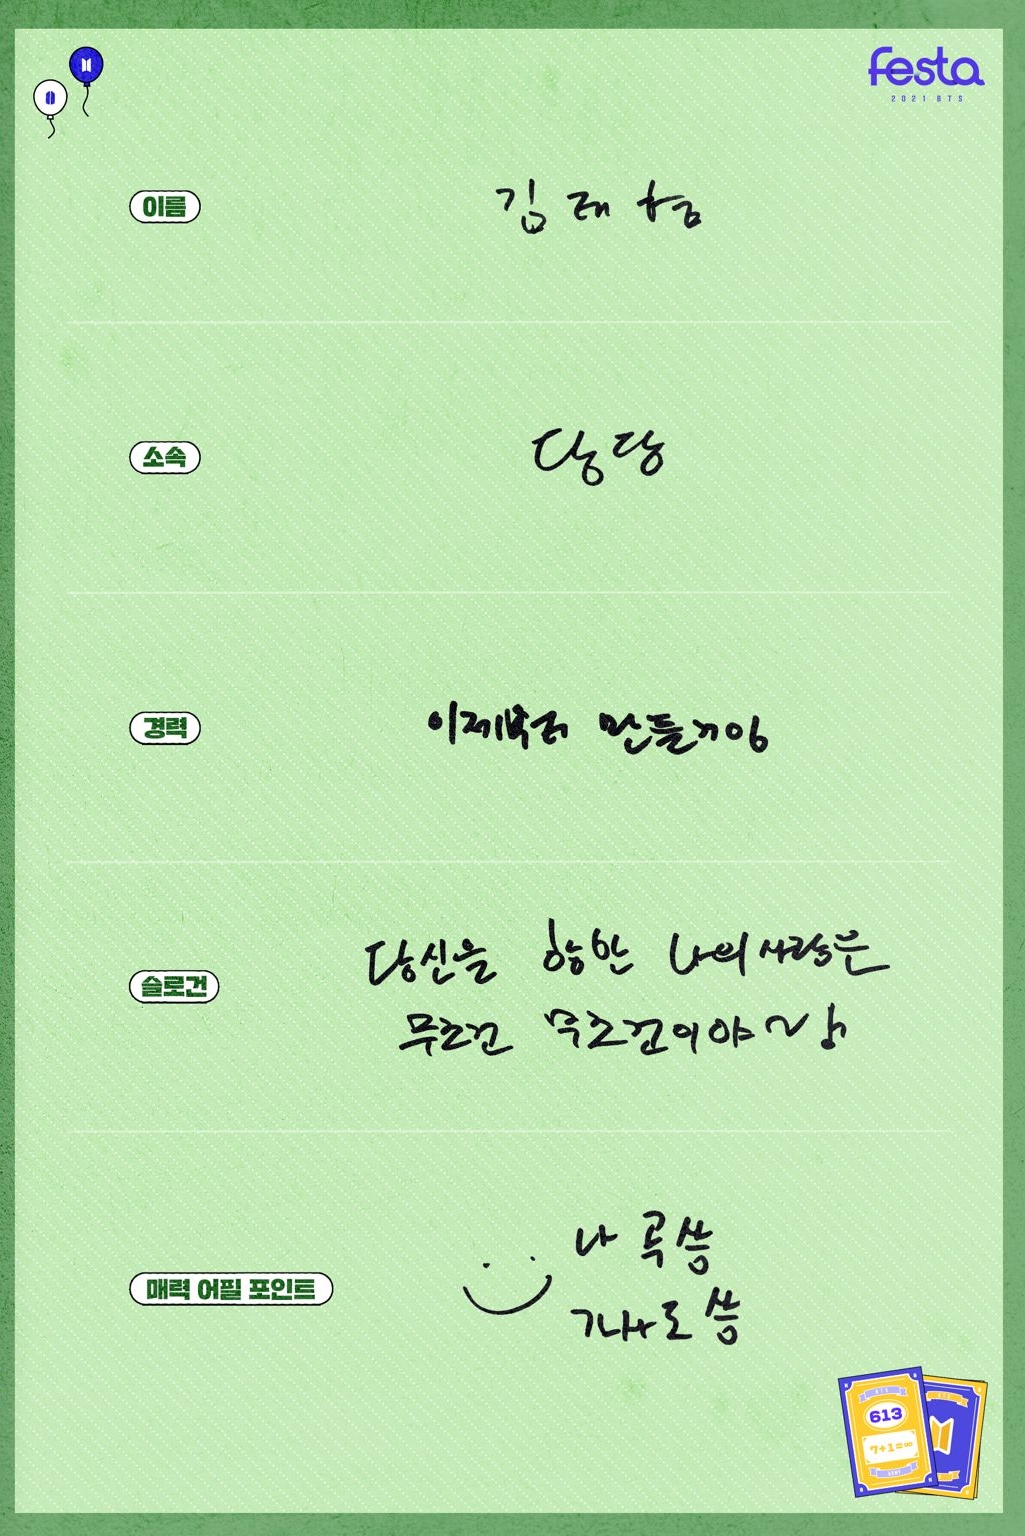 festa
2021 BTS
이름
김태형
소속
당당
경력
이제부터 만들거임
슬로건
당신을 향한 나의 사랑은
무조건 무조건이야~
매력 어필 포인트
나 곡씀
가사도 씀
613
7+1=∞